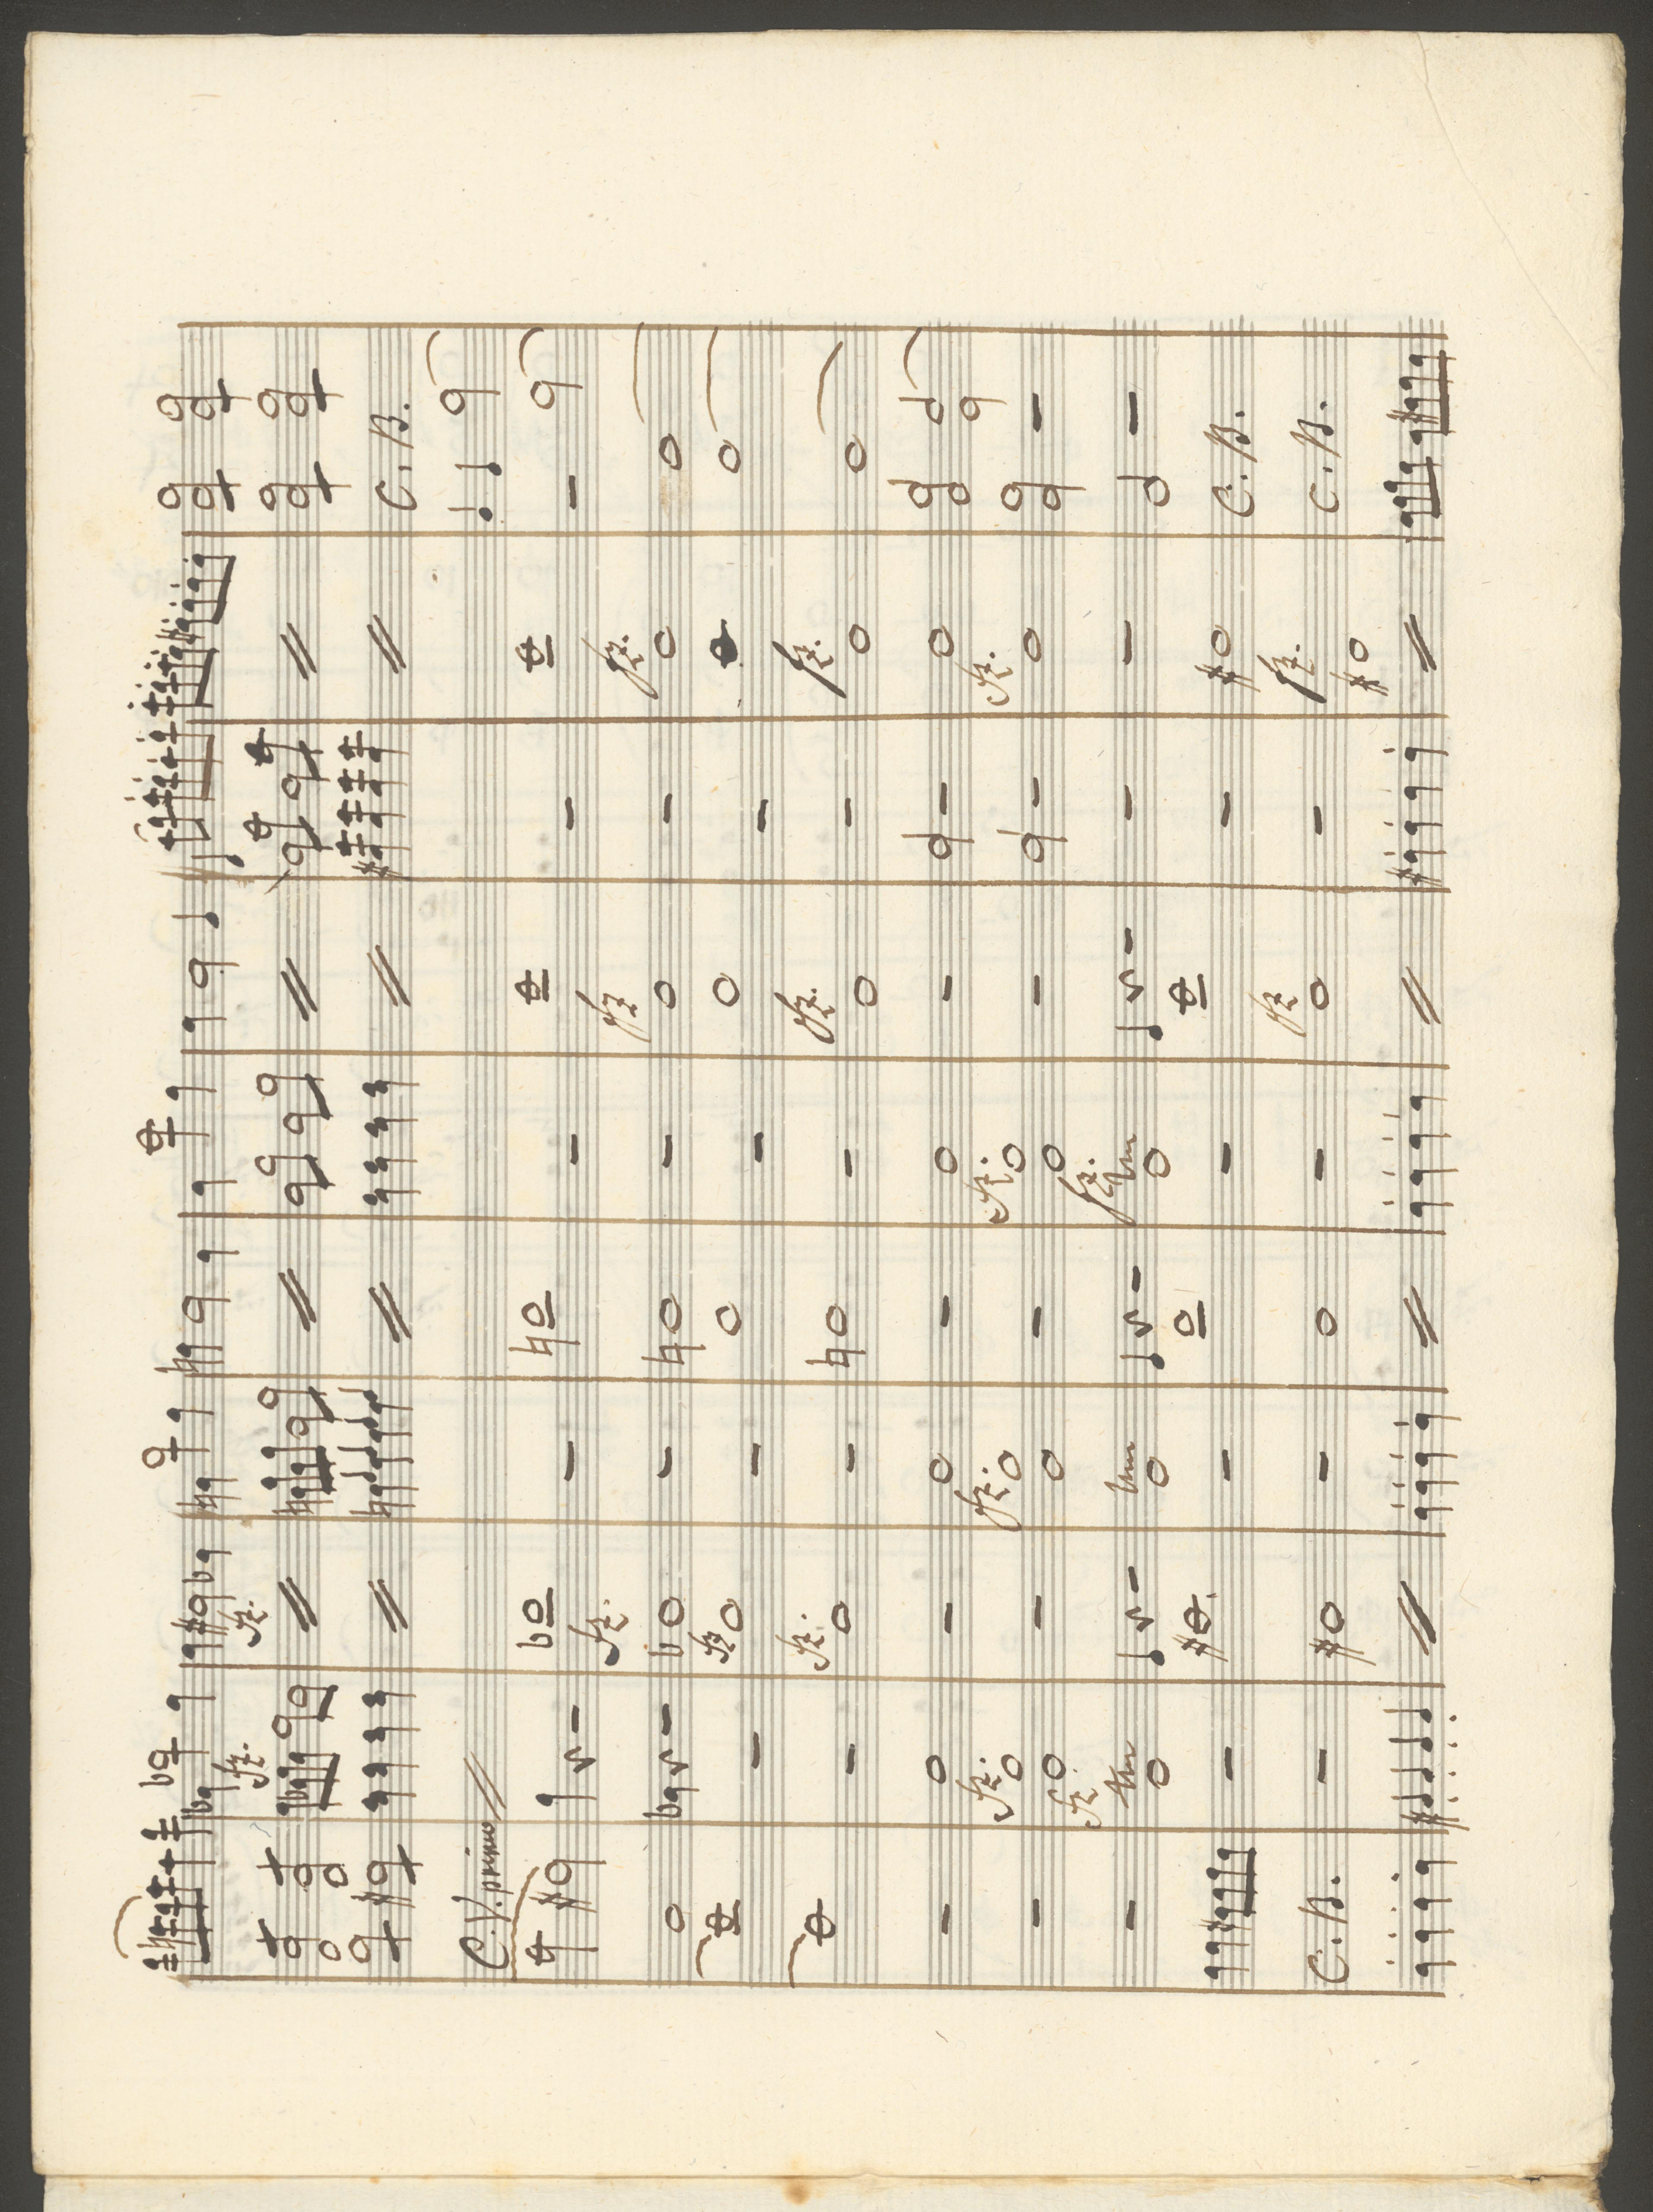 fz. fz.
C. B.
C. V. primo
fz. fz fz.
fz
fz. fz. fz.
fz. fz. fz. fz.
fz. fz.
tr tr tr
C. B.
fz fz.
C. B. C. B.